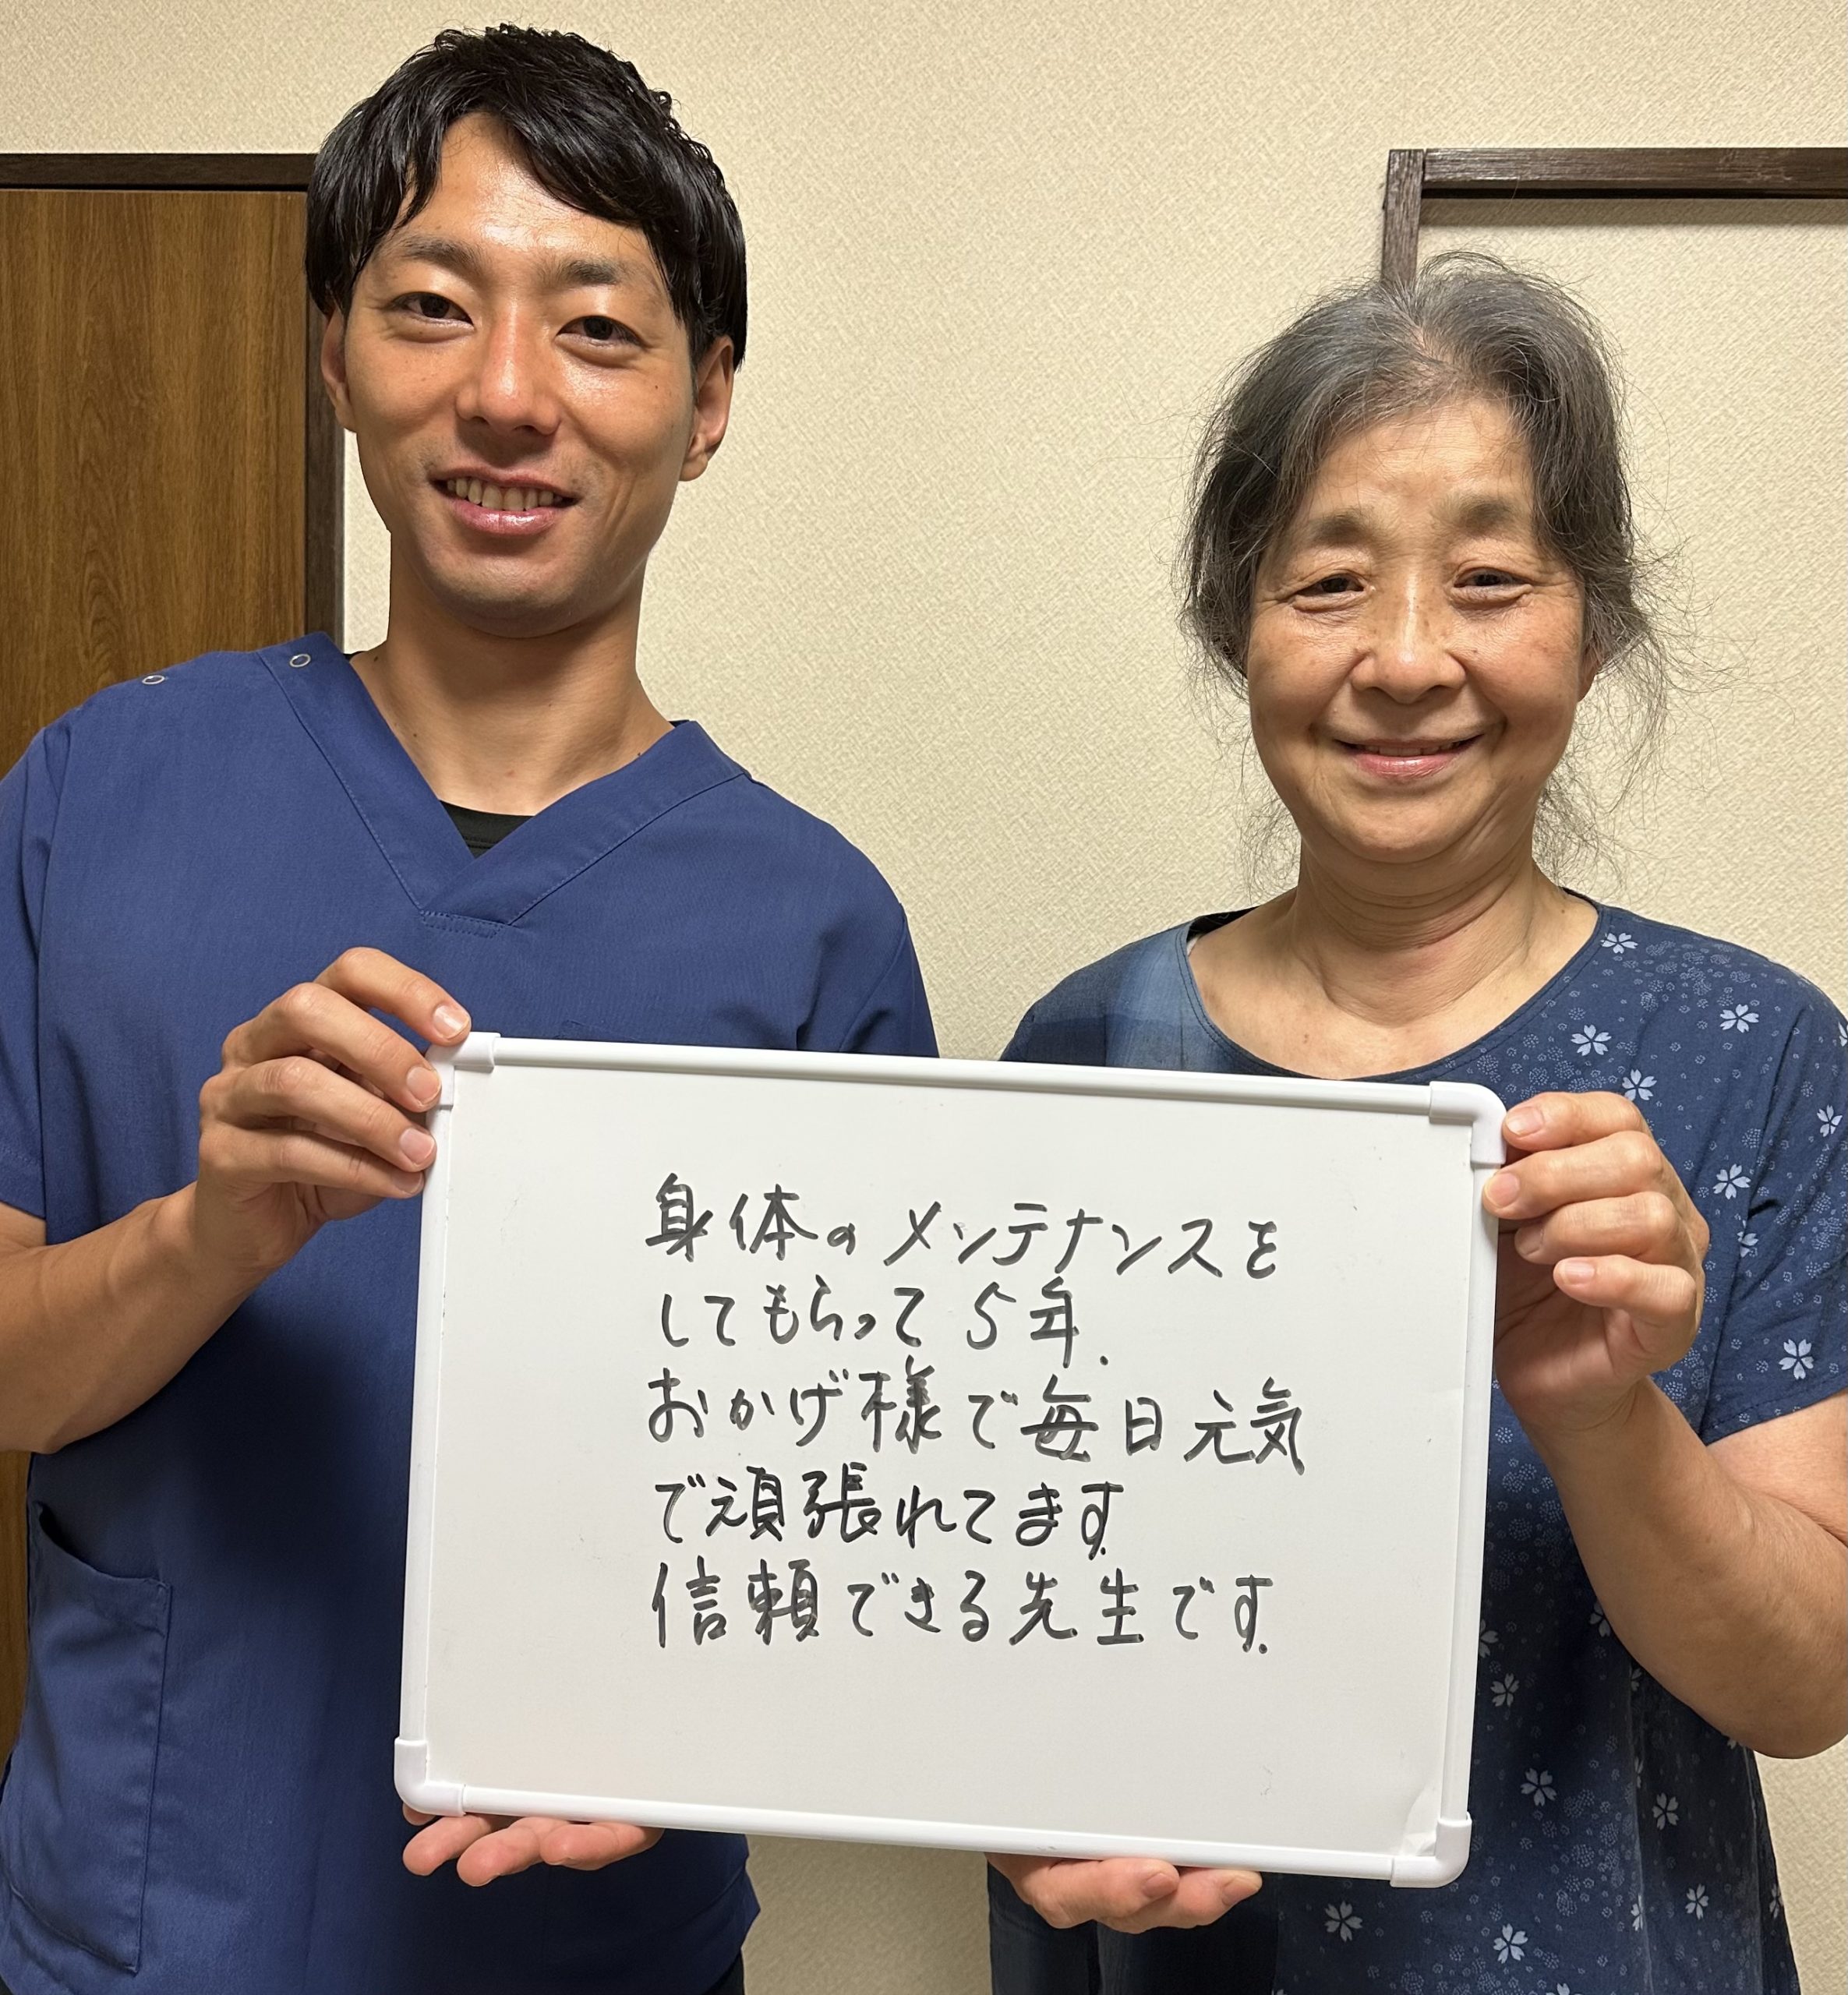 身体のメンテナンスを
してもらって5年.
おかげ様で毎日元気
で頑張れてます.
信頼できる先生です.